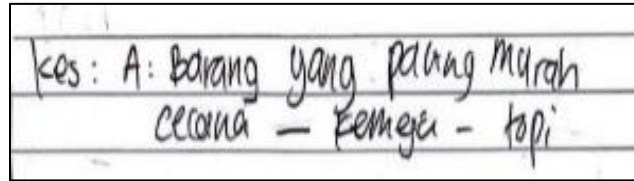 kes : A : Barang yang paling murah
cecana — kemeja - topi